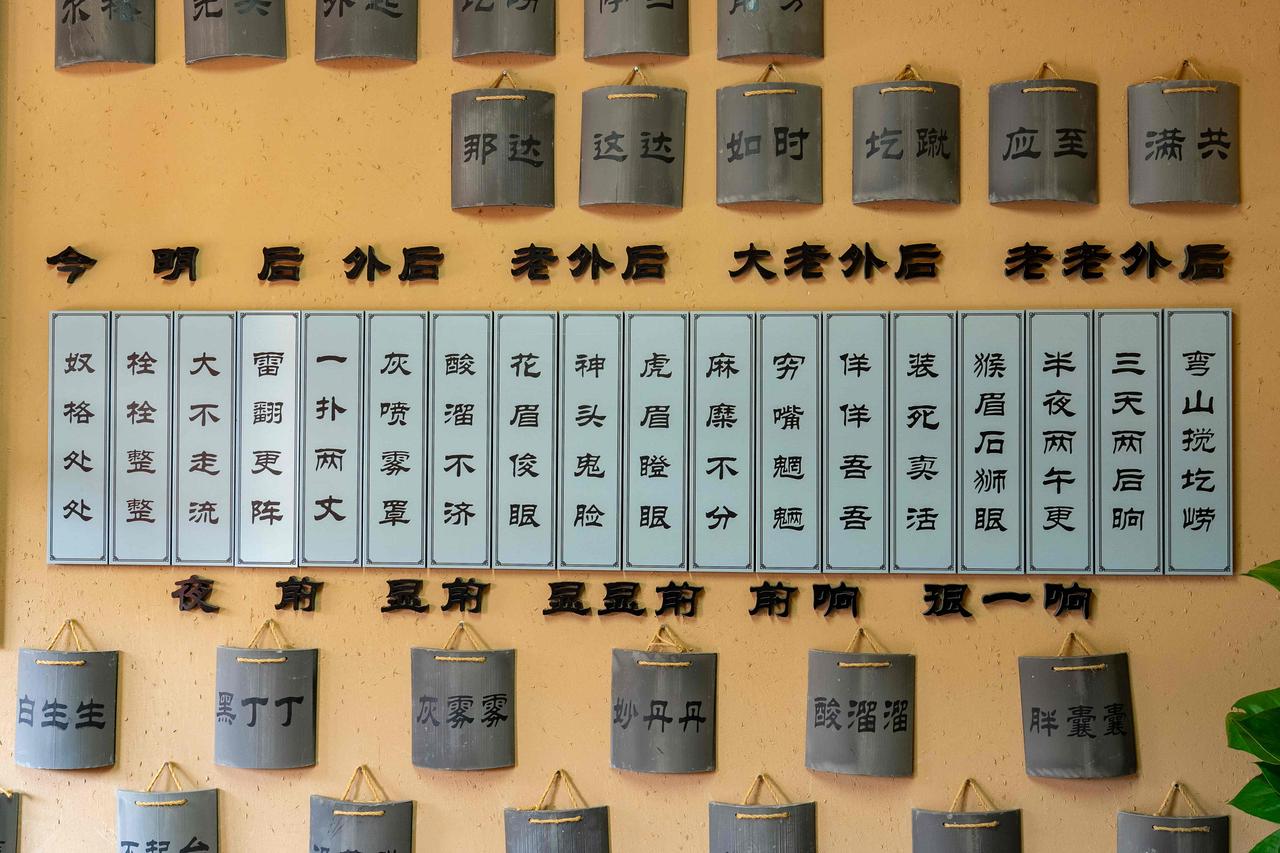 圪崂
那达
这达
如时
圪蹴
应至
满共
今 明 后 外后 老外后 大老外后 老老外后
奴格处处
栓栓整整
大不走流
雷翻更阵
一扑两丈
灰喷雾罩
酸溜不济
花眉俊眼
神头鬼脸
虎眉瞪眼
麻糜不分
穷嘴魍魉
佯佯吾吾
装死卖活
猴眉石狮眼
半夜两午更
三天两后晌
弯山搅圪崂
夜 前 显前 显显前 前响 张一响
白生生
黑丁丁
灰雾雾
妙丹丹
酸溜溜
胖囊囊